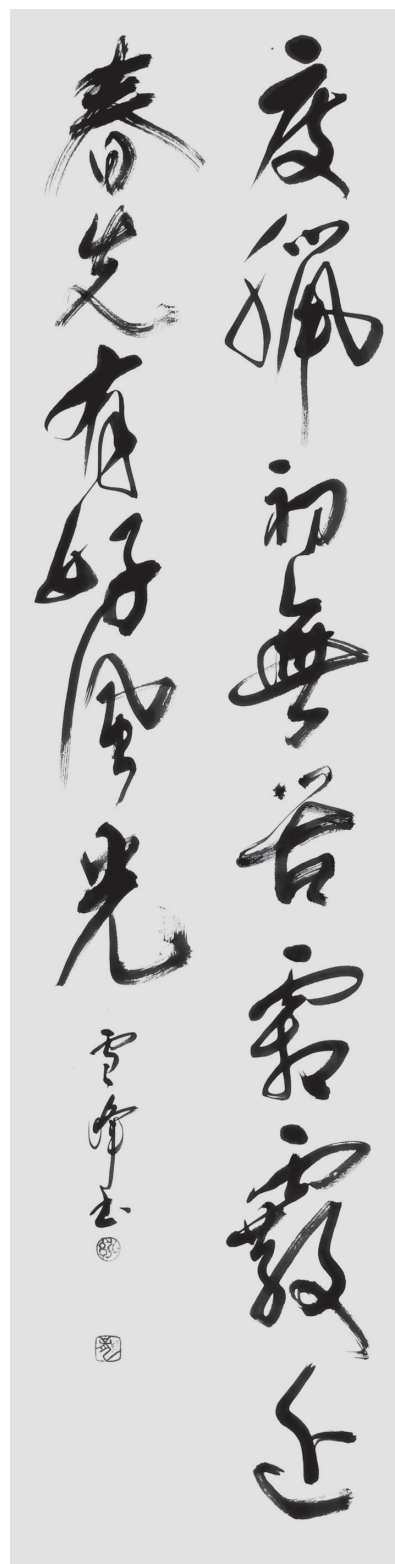 度臘都無苦霜霰迎
春先有好風光
雪峰书